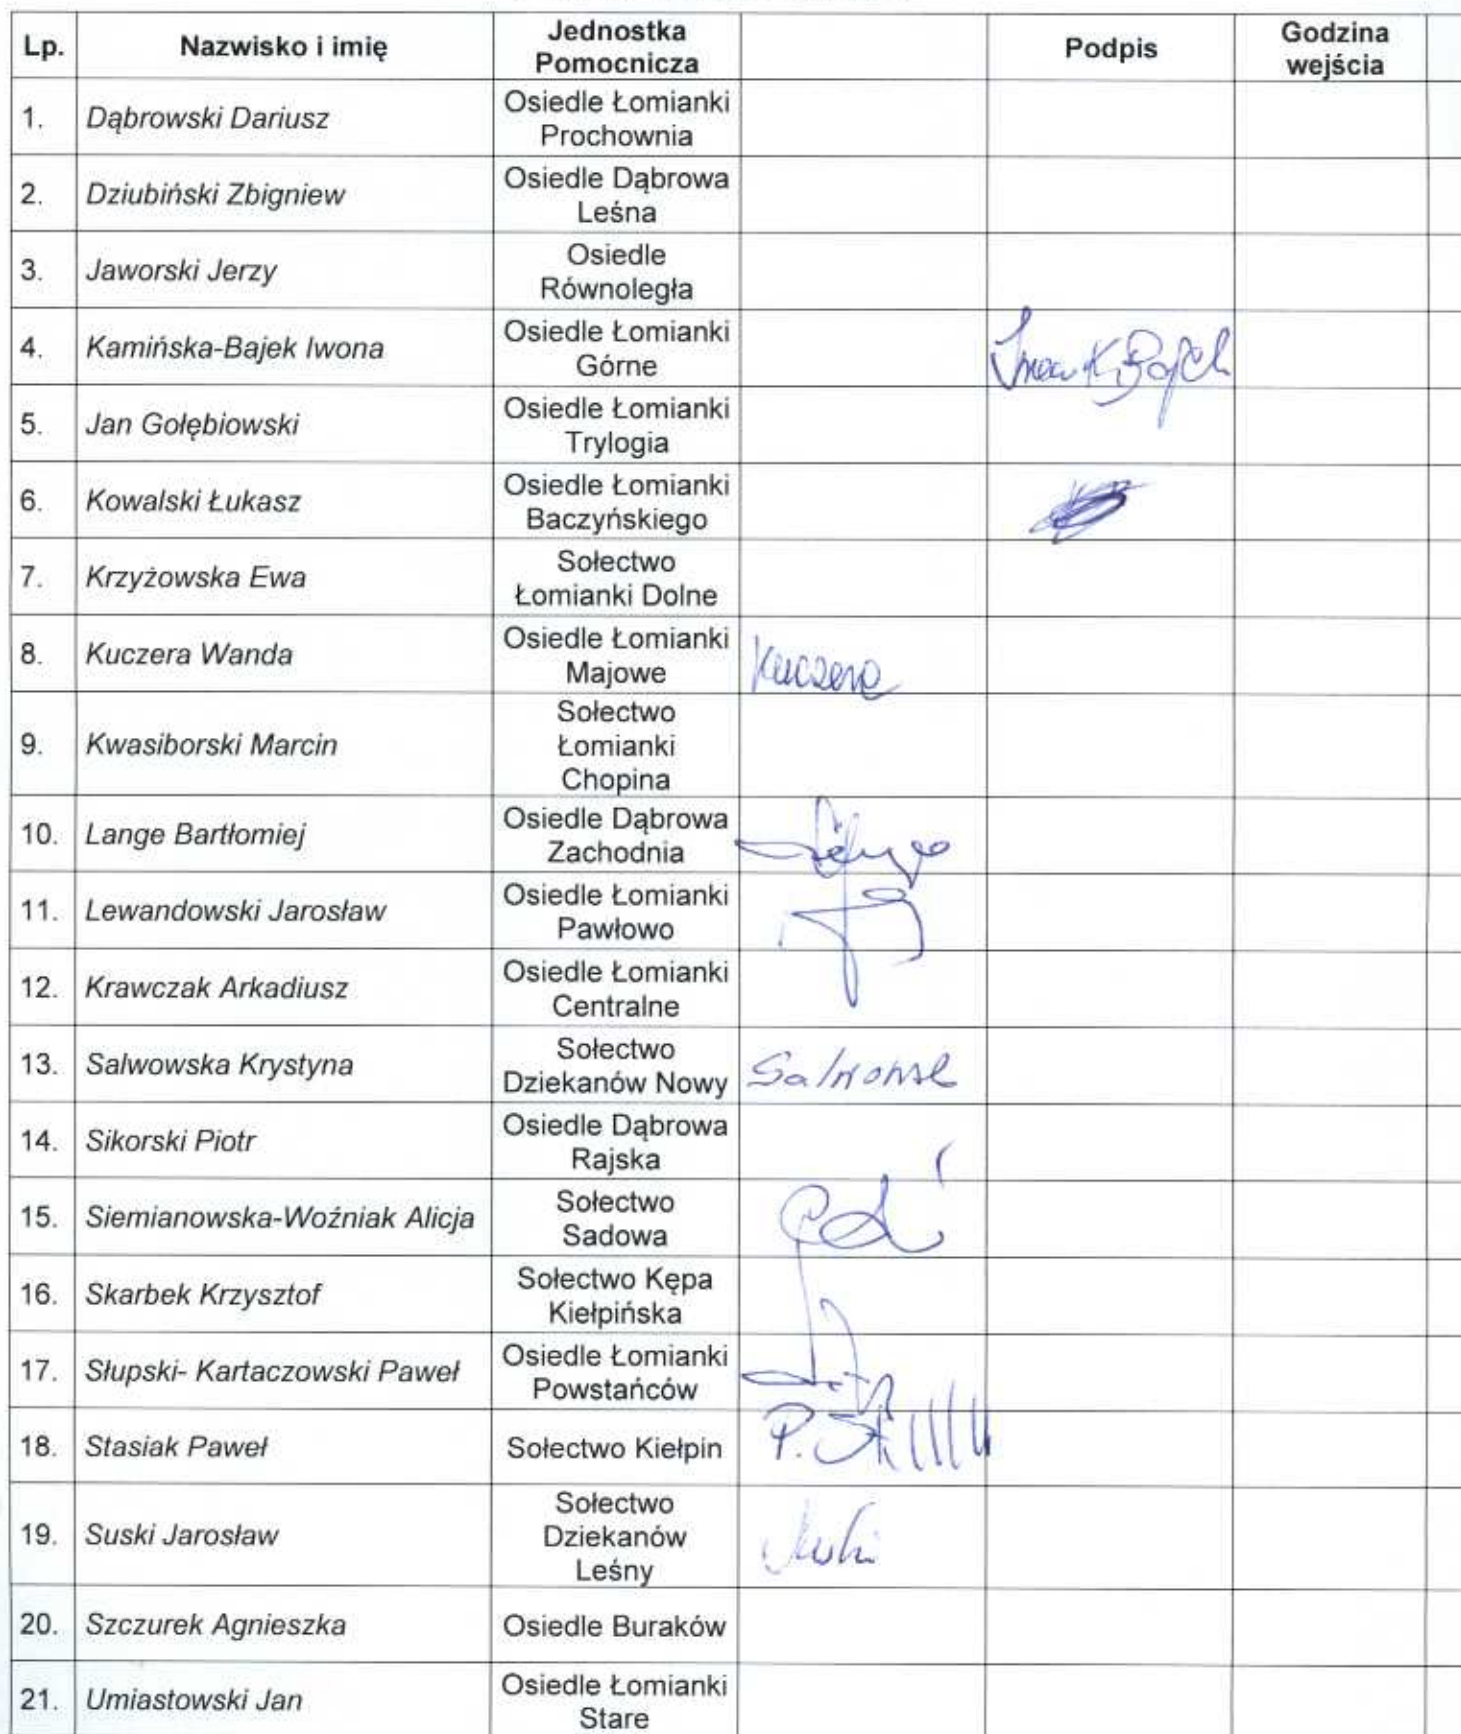 Lp. Nazwisko i imię Jednostka Pomocnicza Podpis Godzina wejścia
1. Dąbrowski Dariusz Osiedle Łomianki Prochownia
2. Dziubiński Zbigniew Osiedle Dąbrowa Leśna
3. Jaworski Jerzy Osiedle Równoległa
4. Kamińska-Bajek Iwona Osiedle Łomianki Górne
5. Jan Gołębiowski Osiedle Łomianki Trylogia
6. Kowalski Łukasz Osiedle Łomianki Baczyńskiego
7. Krzyżowska Ewa Sołectwo Łomianki Dolne
8. Kuczera Wanda Osiedle Łomianki Majowe Kuczera
9. Kwasiborski Marcin Sołectwo Łomianki Chopina
10. Lange Bartłomiej Osiedle Dąbrowa Zachodnia
11. Lewandowski Jarosław Osiedle Łomianki Pawłowo
12. Krawczak Arkadiusz Osiedle Łomianki Centralne
13. Salwowska Krystyna Sołectwo Dziekanów Nowy
14. Sikorski Piotr Osiedle Dąbrowa Rajska
15. Siemianowska-Woźniak Alicja Sołectwo Sadowa
16. Skarbek Krzysztof Sołectwo Kępa Kiełpińska
17. Słupski- Kartaczowski Paweł Osiedle Łomianki Powstańców
18. Stasiak Paweł Sołectwo Kiełpin
19. Suski Jarosław Sołectwo Dziekanów Leśny
20. Szczurek Agnieszka Osiedle Buraków
21. Umiastowski Jan Osiedle Łomianki Stare